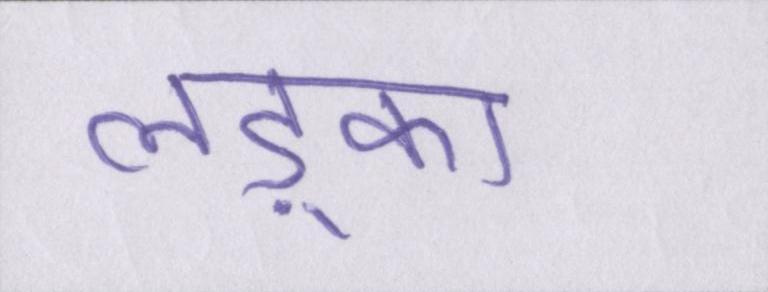 लड़्का